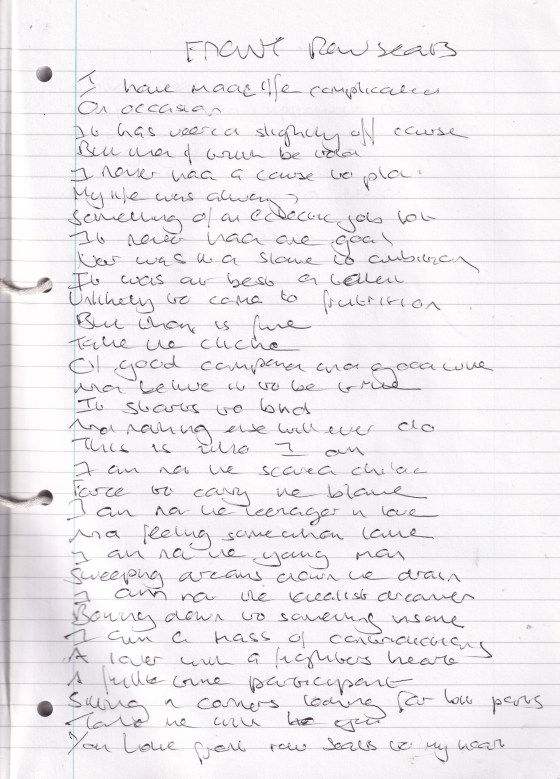 FRONT Row seats
I have made life complicated
On occasion
It has veered slightly off course
But then I wouldn't be
I never had a cause to
My life was always
Something of an eclectic job lot
It never had one goal
Nor was it a slave to ambition
It was at best a
Unlikely to come to fruitition
But that is fine
Take the cliche
Of good company and good wine
And believe it to be true
It starts to bind
And nothing else will ever do
This is who I am
I am not the scared child
Forced to carry the blame
I am not the teenager in love
And feeling somewhat lame
I am not the young man
Sweeping dreams down the drain
I am not the idealist dreamer
Bowing down to something insane
I am a mass of contradictions
A lover with a fighters heart
A full time participant
Sitting in corners looking for bit parts
Take me with
You have front row seats to my heart